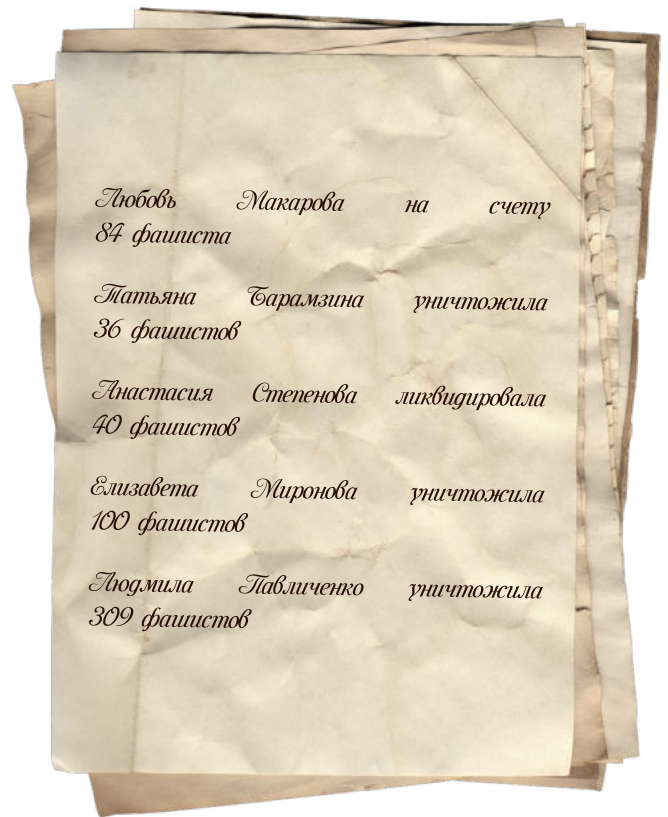 Любовь Макарова на счету
84 фашиста
Татьяна Барамзина уничтожила
36 фашистов
Анастасия Степенова ликвидировала
40 фашистов
Елизавета Миронова уничтожила
100 фашистов
Людмила Павличенко уничтожила
309 фашистов